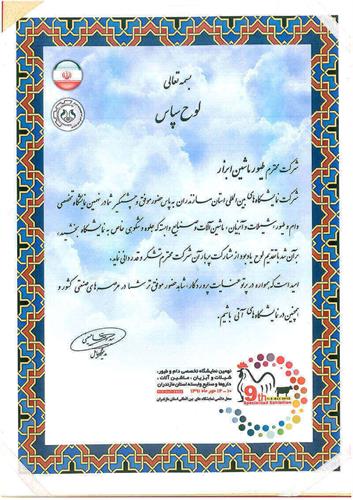 بسمه تعالی
لوح سپاس
شرکت محترم طیور ماشین ابزار
شرکت نمایشگاه های بین المللی استان مازندران به پاس حضور موفق و چشمگیر شما در نهمین نمایشگاه تخصصی
دام و طیور، شیلات و آبزیان، ماشین آلات و صنایع وابسته که جلوه و شکوهی خاص به نمایشگاه بخشید،
بر آن شد با تقدیم لوح یادبود از مشارکت پربار آن شرکت محترم تشکر و قدردانی نماید.
امید است که همواره در پرتو عنایات پروردگار، شاهد حضور موفق تر شما در عرصه های صنعتی کشور و
همچنین در نمایشگاه های آتی باشیم.
نهمین نمایشگاه تخصصی دام و طیور،
شیلات و آبزیان، ماشین آلات،
داروها و صنایع وابسته استان مازندران
۱۰ - ۱۳ مهر ماه ۱۳۹۱
محل دائمی نمایشگاه های بین المللی استان مازندران
9th
Specialized Exhibition